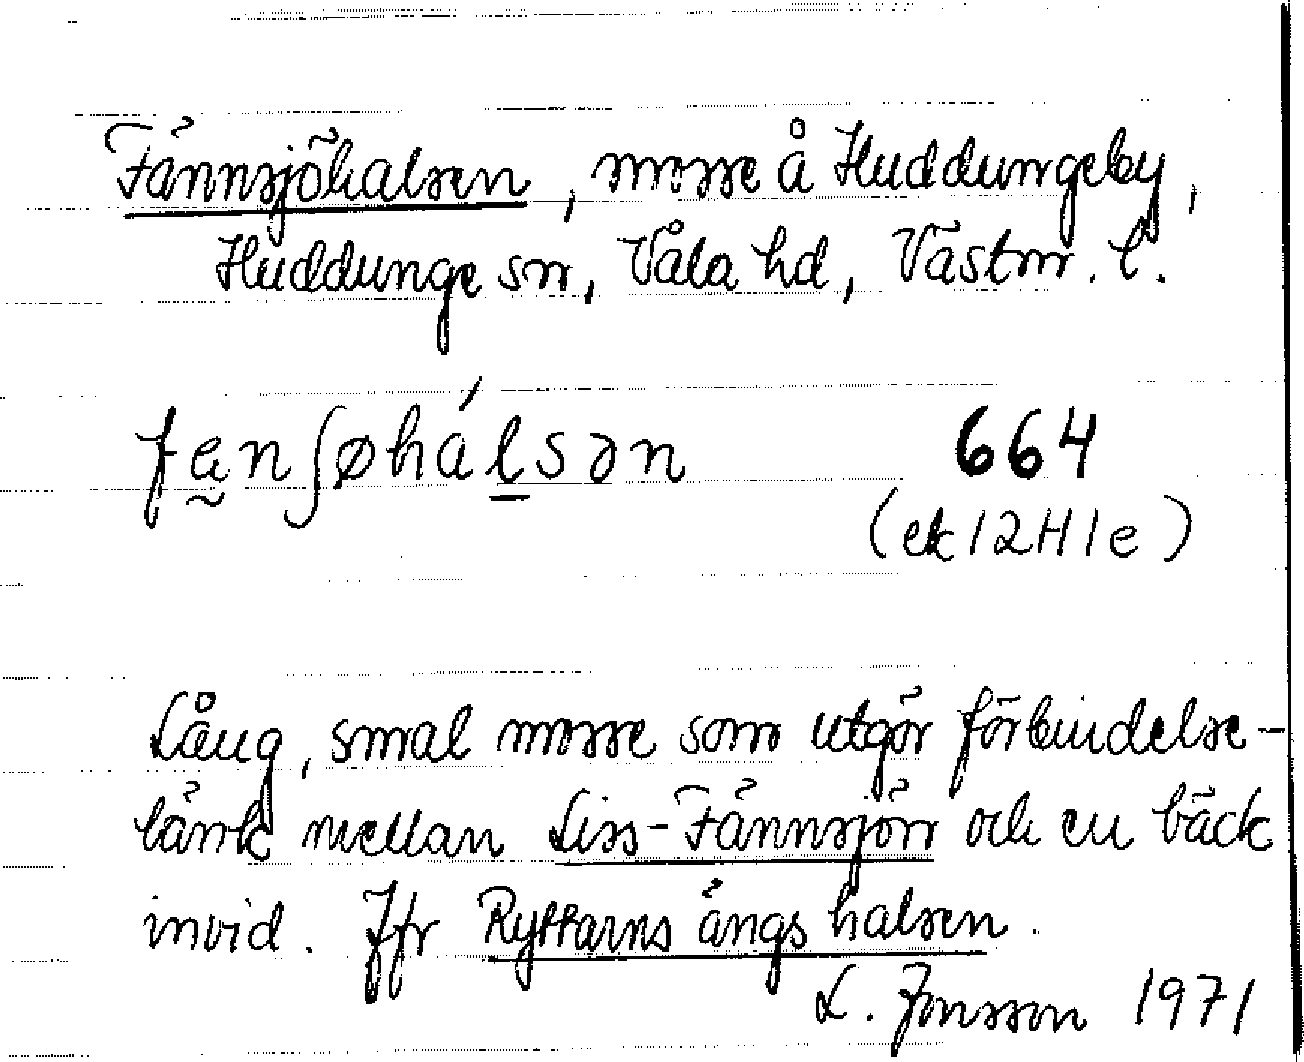 Fännsjöhalsen, mosse å Huddungeby,
Huddunge sn, Våla hd, Västm. l.
fa̰nʃøhál̲sən 664
(ek 12H1e)
Lång, smal mosse som utgör förbindelse-
länk mellan Liss-Fännsjön och en bäck
invid. Jfr Ryttarns ängs halsen.
L. Jonsson 1971